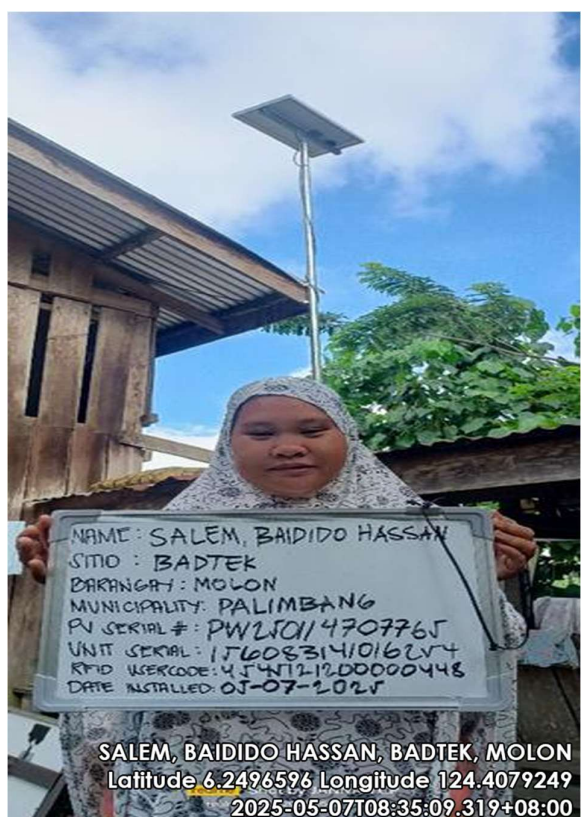 NAME: SALEM, BAIDIDO HASSAN
SITIO : BADTEK
BARANGAY: MOLON
MUNICIPALITY: PALIMBANG
PV SERIAL #: PW250114707765
UNIT SERIAL: 156083141016254
RFID USERCODE: 4545121200000448
DATE INSTALLED: 05-07-2025
SALEM, BAIDIDO HASSAN, BADTEK, MOLON
Latitude 6.2496596 Longitude 124.4079249
2025-05-07T08:35:09.319+08:00